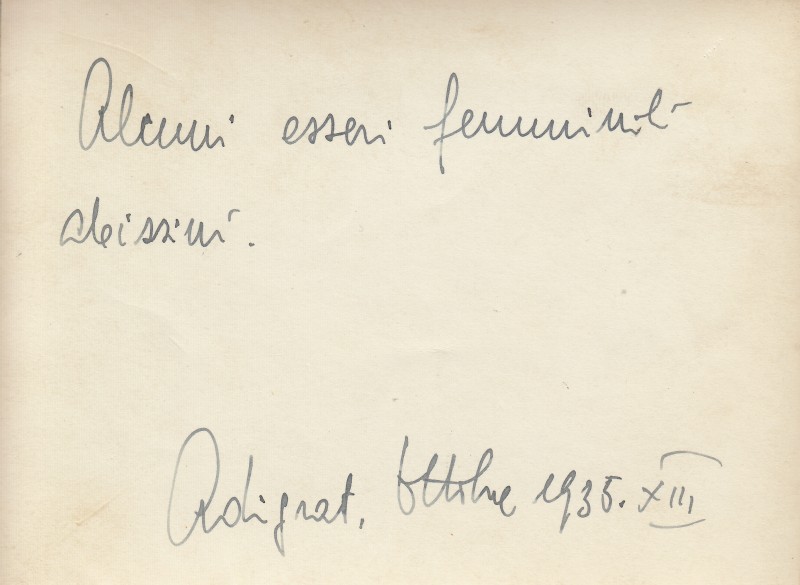 Alcuni esseri femminili
abissini.
Adigrat, Ottobre 1935. XIII